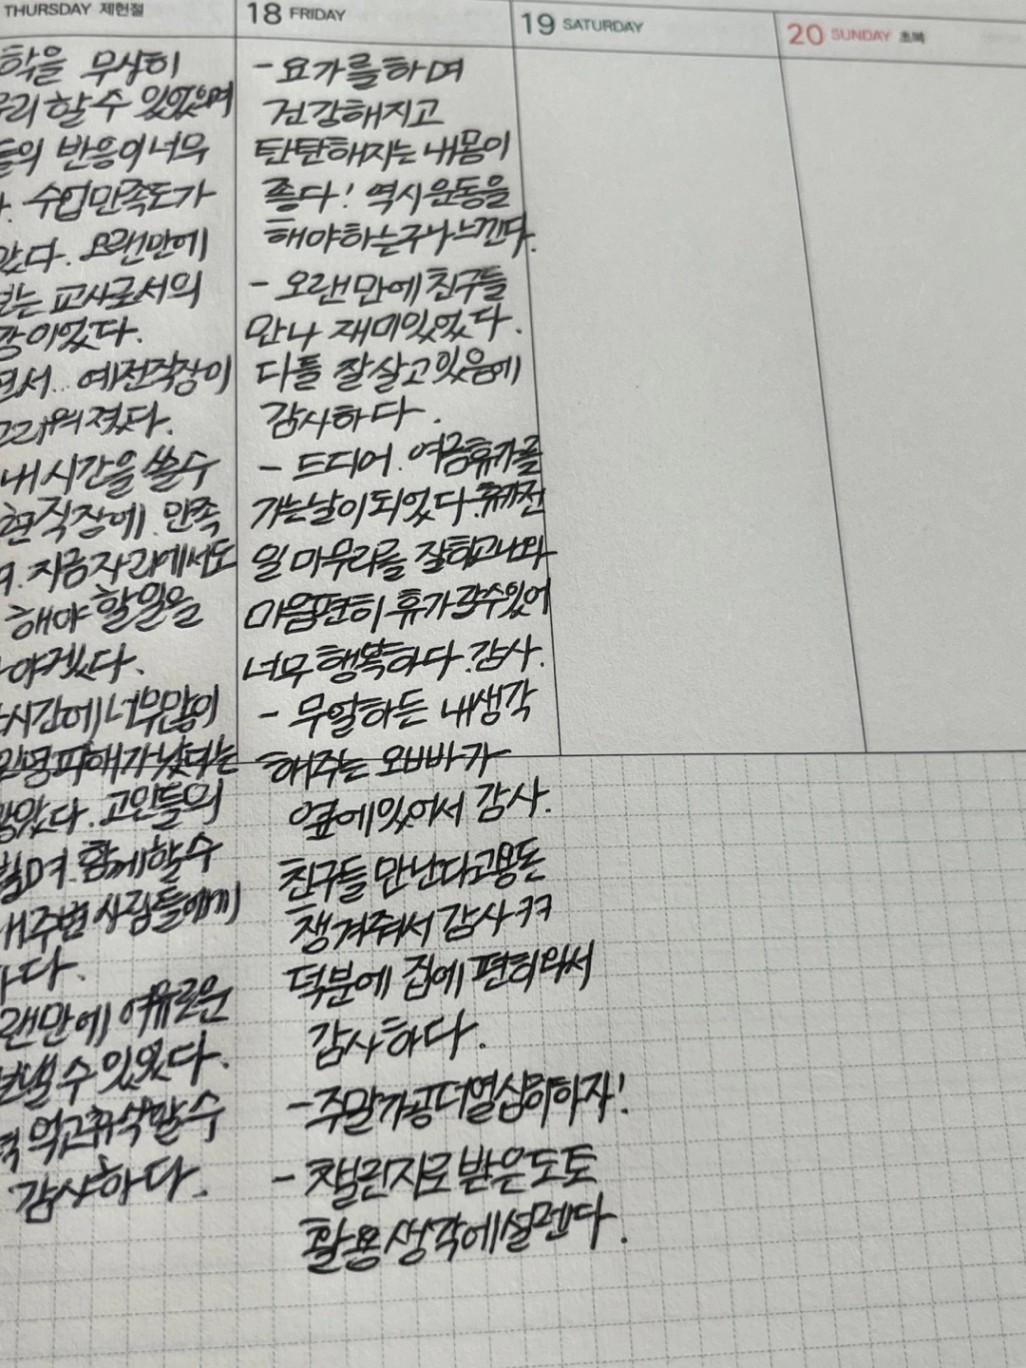 THURSDAY 제헌절
학을 무사히
우리 할 수 있었으며
들의 반응이 너무
수업만족도가
았다. 오랜만에
받는 교사로서의
강이었다.
면서.. 예전직장이
그리워졌다.
내 시간을 쓸 수
현직장에 만족
며. 지금자리에서도
해야 할일을
야겠다.
시간에 너무많이
인명피해가 났다는
많았다. 고인들의
빌며 함께할수
내주변 사람들에게
하다.
랜만에 여유로운
보낼 수 있었다.
먹고휴식할수
감사하다.
18 FRIDAY
- 요가를하며
건강해지고
탄탄해지는 내몸이
좋다! 역시운동을
해야하는구나느낀다.
- 오랜만에 친구들
만나 재미있었다.
다들 잘살고있음에
감사하다.
- 드디어. 여름휴가를
가는날이되었다. 휴가전
일 마무리를 잘하고나와
마음편히 휴가갈수있어
너무행복하다. 감사.
- 무얼하든 내생각
해주는 오빠가
옆에있어서 감사.
친구들 만난다고용돈
챙겨줘서 감사ㅋㅋ
덕분에 집에 편히와서
감사하다.
- 주말가공더열심히하자!
- 챌린지로 받은도토
활용 생각에설렌다.
19 SATURDAY
20 SUNDAY 초복